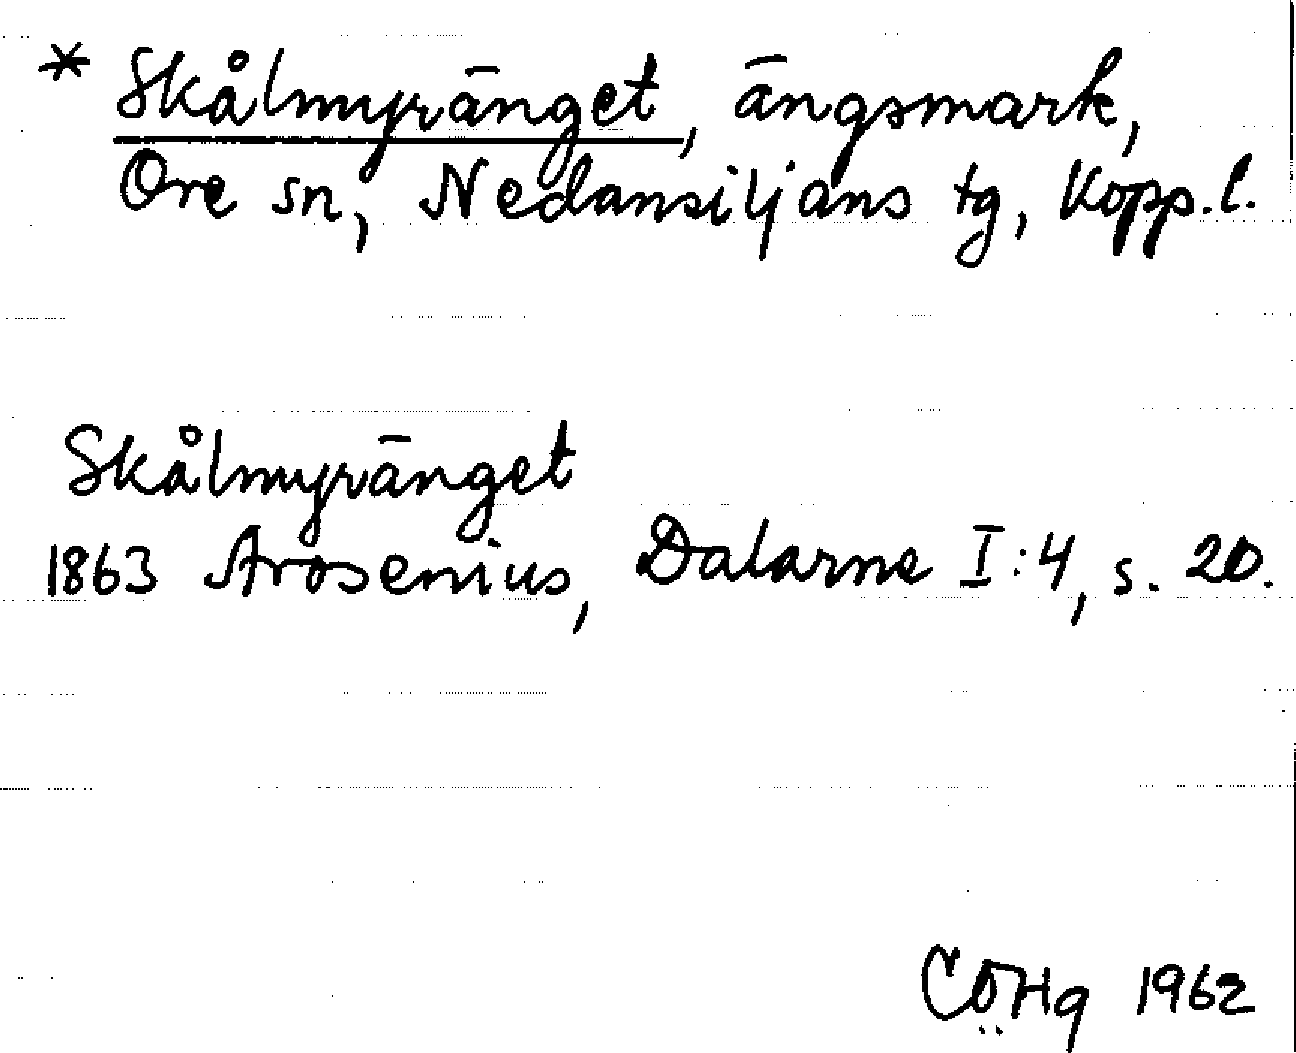 * Skålmyränget, ängsmark,
Ore sn, Nedansiljans tg, Kopp.l.
Skålmyränget
1863 Arosenius, Dalarne I:4, s. 20.
CÖHg 1962